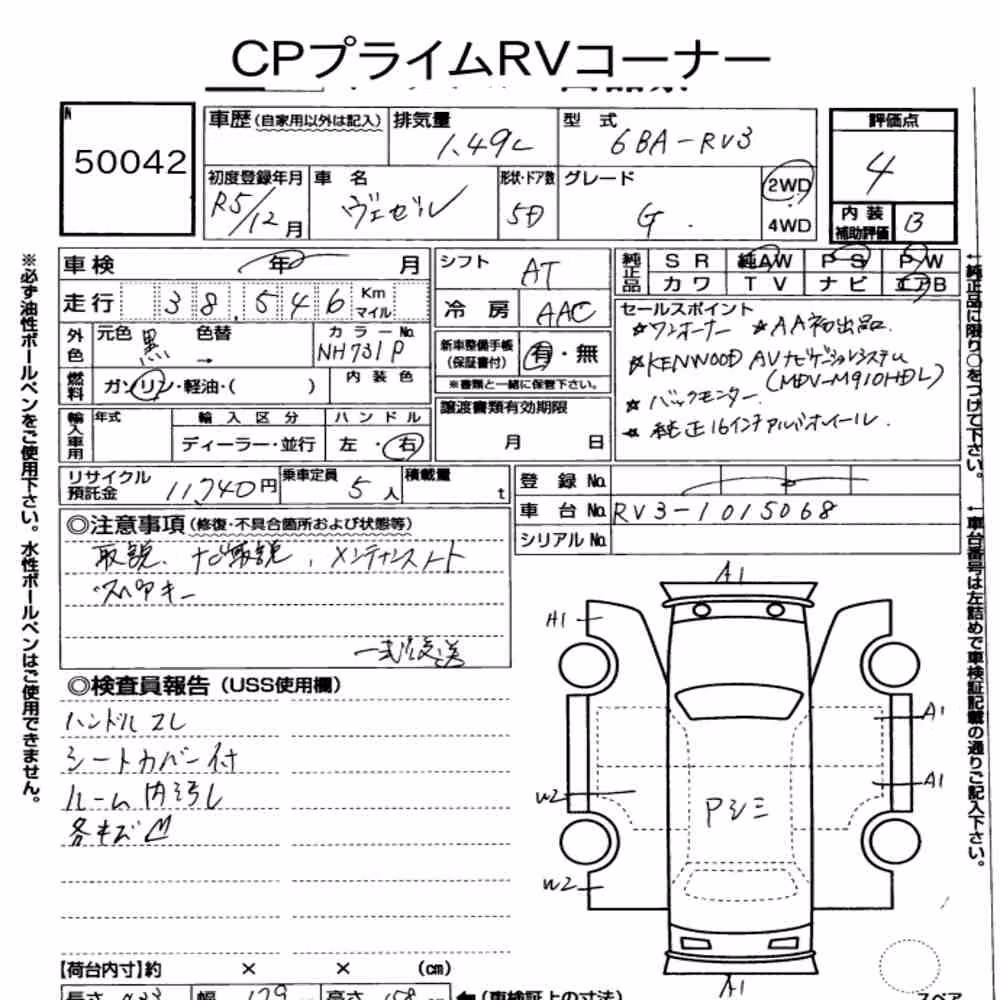 CPプライムRVコーナー
№
50042
車歴 (自家用以外は記入)
排気量
1.49L
型式
6BA-RV3
評価点
4
初度登録年月
R5/12月
車名
ヴェゼル
形状・ドア数
5D
グレード
G
2WD
4WD
内装
補助評価
B
車検 年 月
走行 38,546 Km マイル
シフト
AT
冷房
AAC
純正品
SR 純AW PS PW
カワ TV ナビ エアB
外色
元色 黒 色替 →
カラーNo.
NH731P
燃料
ガソリン・軽油・( )
内装色
新車整備手帳
(保証書付)
有・無
※書類と一緒に保管下さい。
セールスポイント
☆ワンオーナー ☆AA初出品
☆KENWOOD AVナビゲーションシステム
(MDV-M910HDL)
☆バックモニター
☆純正16インチアルミホイール
輸入車用
年式
輸入区分
ディーラー・並行
ハンドル
左・右
譲渡書類有効期限
月 日
リサイクル
預託金
11740円
乗車定員
5人
積載量
t
登録No.
車台No. RV3-1015068
シリアルNo.
◎注意事項 (修復・不具合箇所および状態等)
取説、ナビ取説、メンテナンスノート
スペアキー
一式後送
◎検査員報告 (USS使用欄)
ハンドルスレ
シートカバー付
ルーム内汚れ
各キズ凹
A1
A1
A1
A1
W2
Pシミ
W2
A1
【荷台内寸】約 × × (cm)
長さ 433 幅 179 高さ 158 ←(車検証上の寸法)
スペア
※必ず油性ボールペンをご使用下さい。水性ボールペンはご使用できません。
←純正品に限り○をつけて下さい。
←車台番号は左詰めで車検証記載の通りご記入下さい。